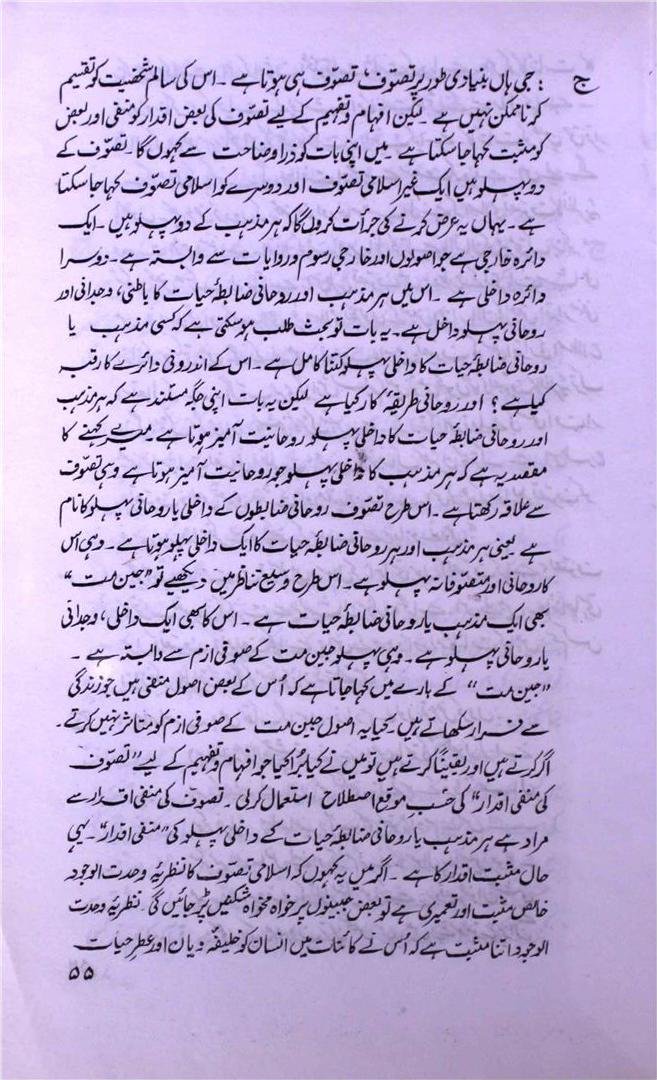 ج : جی ہاں بنیادی طور پر تصوّف، تصوّف ہی ہوتا ہے ۔ اس کی سالم شخصیت کو تقسیم
کرنا ممکن نہیں ہے ۔ لیکن افہام و تفہیم کے لیے تصوّف کی بعض اقدار کو منفی اور بعض
کو مثبت کہا جا سکتا ہے ۔ میں اپنی بات کو ذرا وضاحت سے کہوں گا ۔ تصوّف کے
دو پہلو ہیں ایک غیر اسلامی تصوّف اور دوسرے کو اسلامی تصوّف کہا جا سکتا
ہے ۔ یہاں یہ عرض کرنے کی جرأت کروں گا کہ ہر مذہب کے دو پہلو ہیں ۔ ایک
دائرہ خارجی ہے جو اصولوں اور خارجی رسوم و روایات سے وابستہ ہے ۔ دوسرا
دائرہ داخلی ہے ۔ اس میں ہر مذہب اور روحانی ضابطۂ حیات کا باطنی، وجدانی اور
روحانی پہلو داخل ہے ۔ یہ بات تو بحث طلب ہو سکتی ہے کہ کسی مذہب یا
روحانی ضابطۂ حیات کا داخلی پہلو کتنا کامل ہے ۔ اس کے اندرونی دائرے کا رقبہ
کیا ہے ؟ اور روحانی طریقۂ کار کیا ہے لیکن یہ بات اپنی جگہ مستند ہے کہ ہر مذہب
اور روحانی ضابطۂ حیات کا داخلی پہلو روحانیت آمیز ہوتا ہے ۔ میرے کہنے کا
مقصد یہ ہے کہ ہر مذہب کا داخلی پہلو جو روحانیت آمیز ہوتا ہے وہی تصوّف
سے علاقہ رکھتا ہے ۔ اس طرح تصوّف روحانی ضابطوں کے داخلی یا روحانی پہلو کا نام
ہے یعنی ہر مذہب اور ہر روحانی ضابطۂ حیات کا ایک داخلی پہلو ہوتا ہے ۔ وہی اُس
کا روحانی اور متصوّفانہ پہلو ہے ۔ اس طرح وسیع تناظر میں دیکھیے تو "جین مت"
بھی ایک مذہب یا روحانی ضابطۂ حیات ہے ۔ اس کا بھی ایک داخلی، وجدانی
یا روحانی پہلو ہے ۔ وہی پہلو جین مت کے صوفی ازم سے وابستہ ہے ۔
"جین مت" کے بارے میں کہا جاتا ہے کہ اُس کے بعض اصول منفی ہیں جو زندگی
سے فرار سکھاتے ہیں ۔ کیا یہ اصول جین مت کے صوفی ازم کو متاثر نہیں کرتے ۔
اگر کرتے ہیں اور یقیناً کرتے ہیں تو میں نے کیا بُرا کیا جو افہام و تفہیم کے لیے "تصوّف
کی منفی اقدار" کی حسبِ موقع اصطلاح استعمال کر لی ۔ تصوّف کی منفی اقدار سے
مراد ہے ہر مذہب یا روحانی ضابطۂ حیات کے داخلی پہلو کی "منفی اقدار" ۔ یہی
حال مثبت اقدار کا ہے ۔ اگر میں یہ کہوں کہ اسلامی تصوّف کا نظریۂ وحدت الوجود
خالص مثبت اور تعمیری ہے تو بعض جبینوں پر خواہ مخواہ شکنیں پڑ جائیں گی نظریۂ وحدت
الوجود اتنا مثبت ہے کہ اُس نے کائنات میں انسان کو خلیفہ و یان اور عطرِ حیات
۵۵